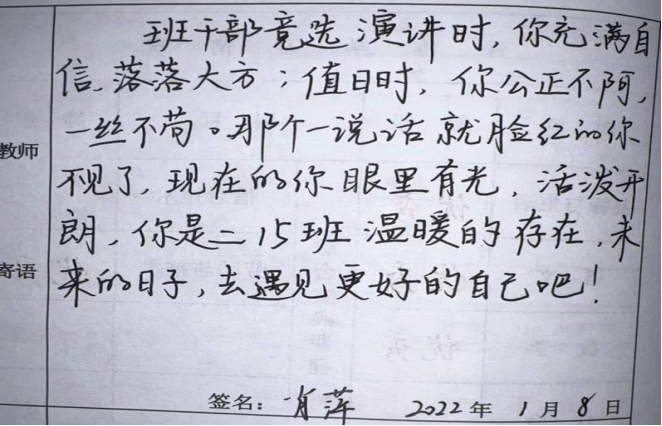 班干部竞选演讲时,你充满自
信、落落大方；值日时，你公正不阿,
一丝不苟。那个一说话就脸红的你
教师
不见了，现在的你眼里有光，活泼开
朗，你是二15班温暖的存在，未
寄语
来的日子，去遇见更好的自己吧！
签名：肖萍 2022年1月8日